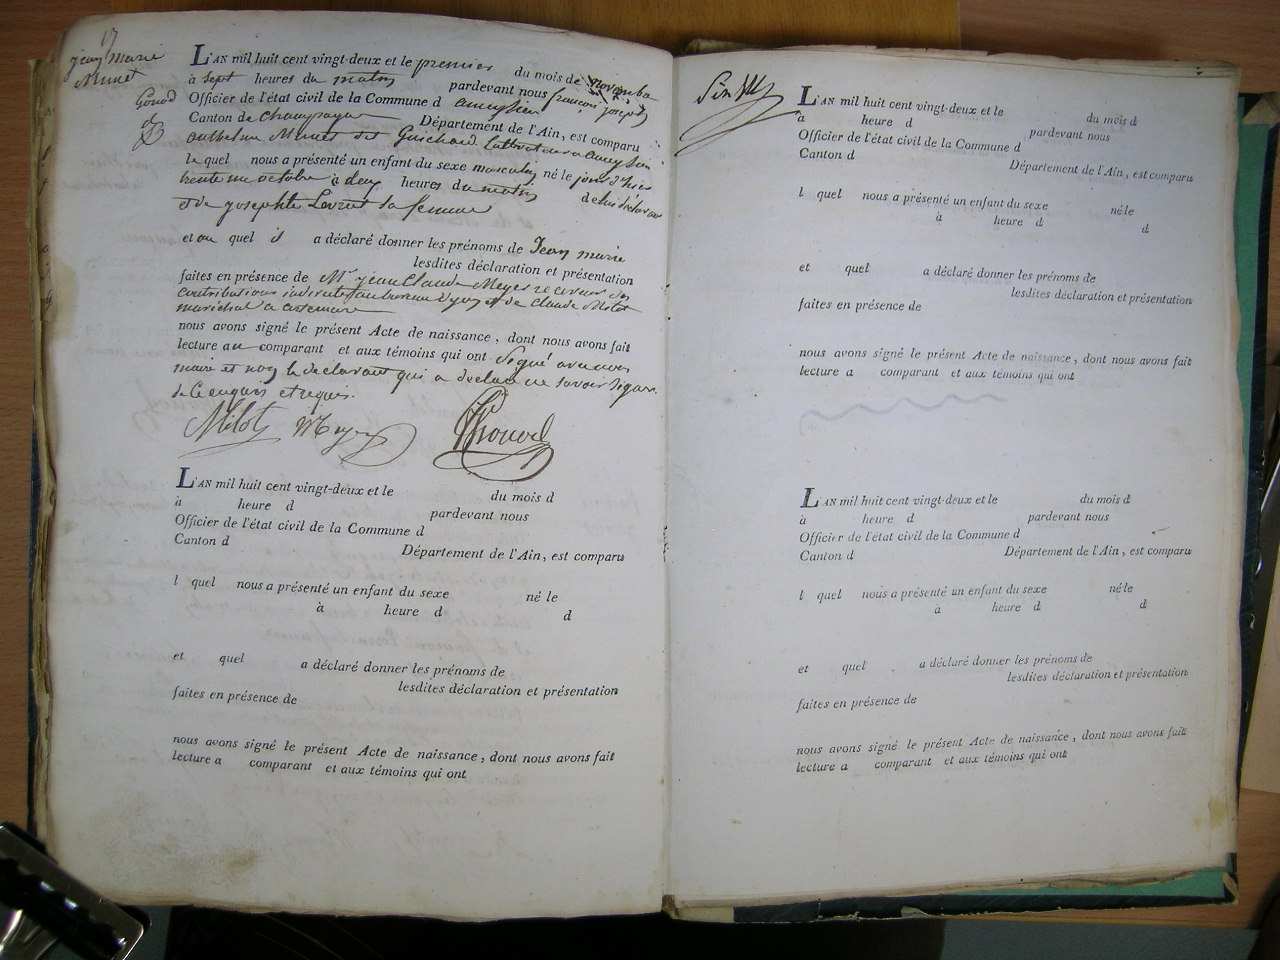 17
jean marie
Munet
L'AN mil huit cent vingt-deux et le premier du mois de novembre
à sept heures du matin pardevant nous françois joseph
Gonod
Officier de l'état civil de la Commune d ameyzieu
Canton de champagne Département de l'Ain, est comparu
anthelme Munet dit Guichard
le quel nous a présenté un enfant du sexe masculin né le jour d'hier
trente un octobre à deux heures du matin de lui déclarant
et de josephte Levret sa femme
et au quel il a déclaré donner les prénoms de Jean marie
lesdites déclaration et présentation
faites en présence de Mr jean Claude Meyer receveur des
contributions indirectes au bureau et de Claude Milot
maréchal à artemare
nous avons signé le présent Acte de naissance, dont nous avons fait
lecture au comparant et aux témoins qui ont signé avec nous
maire et non le déclarant qui a déclaré ne savoir signer
de ce enquis et requis.
Milot Meyer Gonod
L'AN mil huit cent vingt-deux et le du mois d
à heure d pardevant nous
Officier de l'état civil de la Commune d
Canton d Département de l'Ain, est comparu
l quel nous a présenté un enfant du sexe né le
à heure d d
et quel a déclaré donner les prénoms de
lesdites déclaration et présentation
faites en présence de
nous avons signé le présent Acte de naissance, dont nous avons fait
lecture a comparant et aux témoins qui ont
L'AN mil huit cent vingt-deux et le du mois d
à heure d pardevant nous
Officier de l'état civil de la Commune d
Canton d Département de l'Ain, est comparu
l quel nous a présenté un enfant du sexe né le
à heure d d
et quel a déclaré donner les prénoms de
lesdites déclaration et présentation
faites en présence de
nous avons signé le présent Acte de naissance, dont nous avons fait
lecture a comparant et aux témoins qui ont
L'AN mil huit cent vingt-deux et le du mois d
à heure d pardevant nous
Officier de l'état civil de la Commune d
Canton d Département de l'Ain, est comparu
l quel nous a présenté un enfant du sexe né le
à heure d d
et quel a déclaré donner les prénoms de
lesdites déclaration et présentation
faites en présence de
nous avons signé le présent Acte de naissance, dont nous avons fait
lecture a comparant et aux témoins qui ont